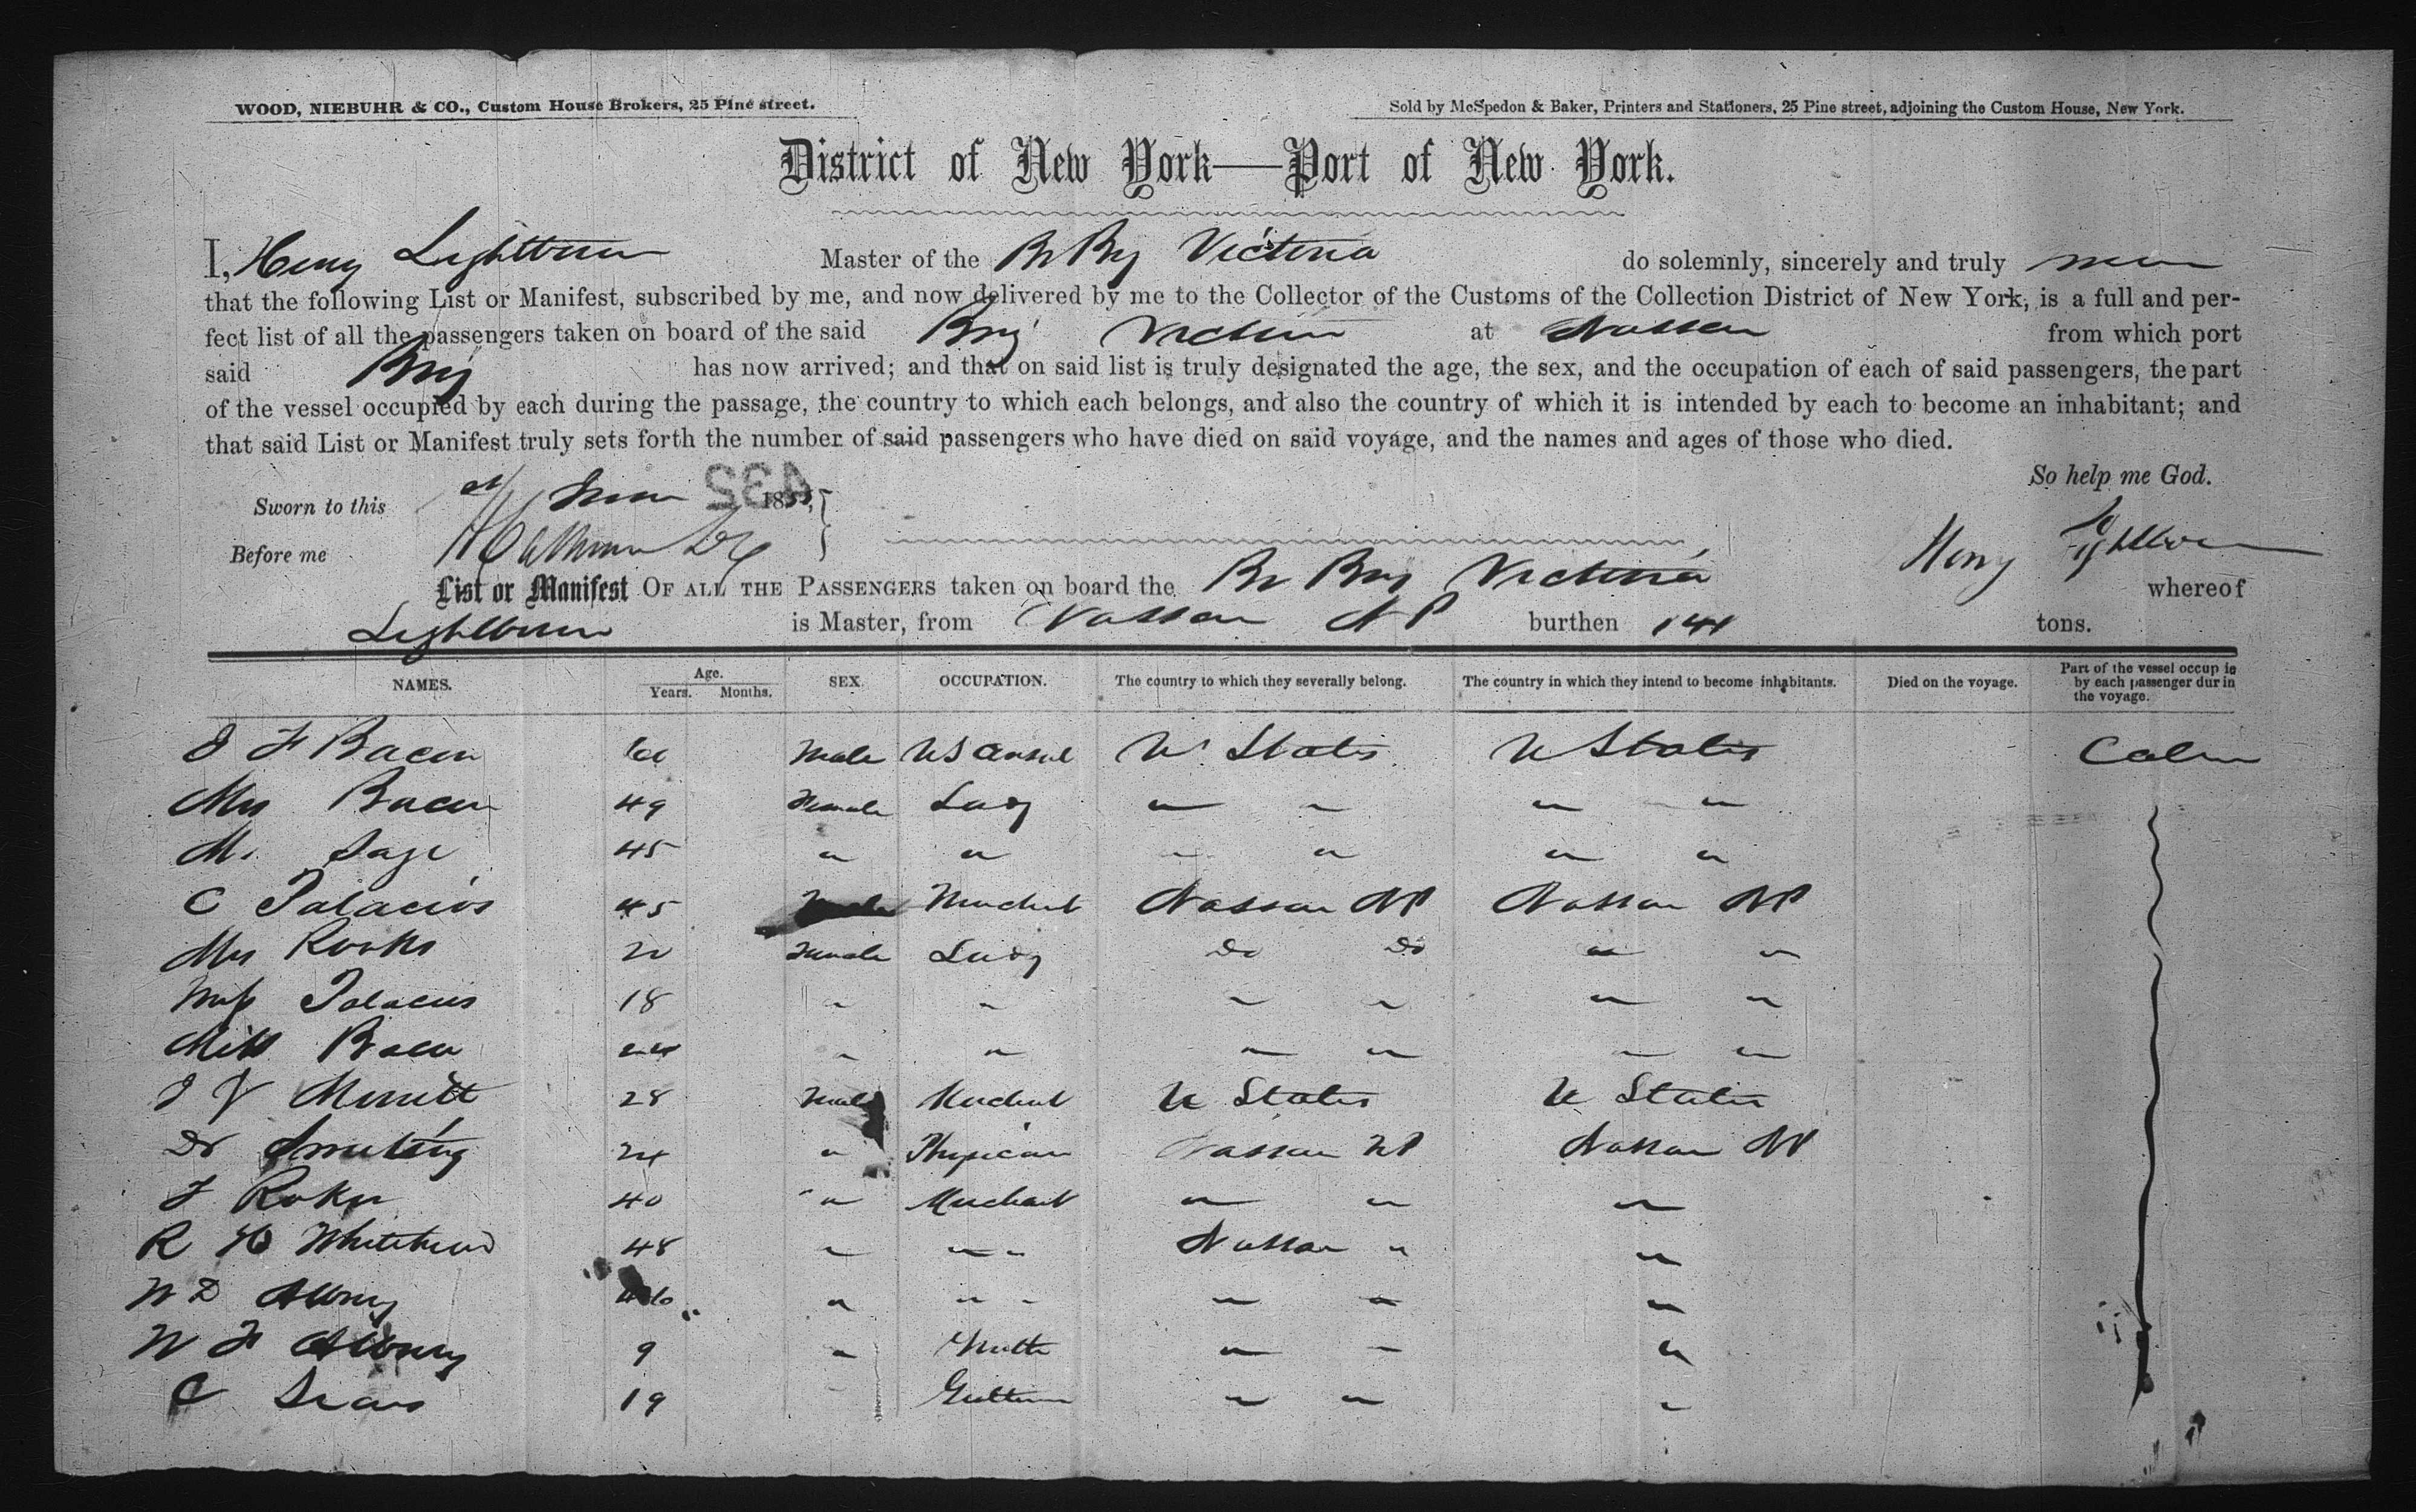 WOOD, NIEBUHR & CO., Custom House Brokers, 25 Pine street.
Sold by McSpedon & Baker, Printers and Stationers, 25 Pine street, adjoining the Custom House, New York.
District of New York—Port of New York.
I, Henry Lightbourn Master of the Br Brig Victoria do solemnly, sincerely and truly swear
that the following List or Manifest, subscribed by me, and now delivered by me to the Collector of the Customs of the Collection District of New York, is a full and per-
fect list of all the passengers taken on board of the said Brig Victoria at Nassau from which port
said Brig has now arrived; and that on said list is truly designated the age, the sex, and the occupation of each of said passengers, the part
of the vessel occupied by each during the passage, the country to which each belongs, and also the country of which it is intended by each to become an inhabitant; and
that said List or Manifest truly sets forth the number of said passengers who have died on said voyage, and the names and ages of those who died.
So help me God.
432
Sworn to this 185
Before me
Henry Lightbourn
List or Manifest OF ALL THE PASSENGERS taken on board the Br Brig Victoria whereof
Lightbourn is Master, from Nassau NP burthen 141 tons.
NAMES. Age. Years. Months. SEX. OCCUPATION. The country to which they severally belong. The country in which they intend to become inhabitants. Died on the voyage. Part of the vessel occupie by each passenger durin the voyage.
J F Bacon Male US Consul U States U States Cabin
Mrs Bacon 49 Female Lady " " " "
M. Sage 45 " " " " " "
C Palacios 45 Male Merchant Nassau NP Nassau NP
Mrs Rooks 20 Female Lady Do Do " "
Miss Palacios 18 " " " " " "
Miss Bacon " " " " " "
J V Merritt 28 Male Merchant U States U States
Dr 24 " Physician Nassau NP Nassau NP
J Roker 40 " Merchant " " "
R H Whitehead 48 " " " Nassau " "
W D Albury " " " " " "
W F Albury 9 " Youth " " "
C Sears 19 " Gentleman " " "